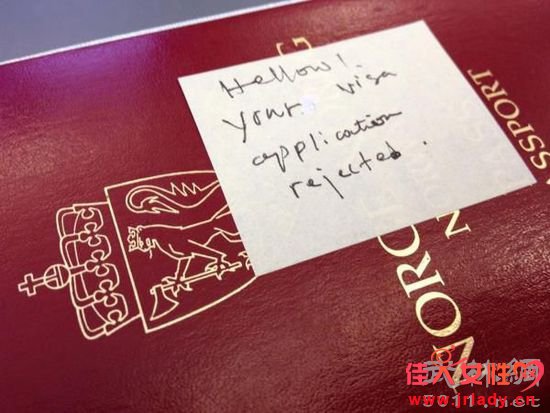 Hellow!
your visa
application
rejected.
PASSPORT
佳人女性网
jrlady.cn